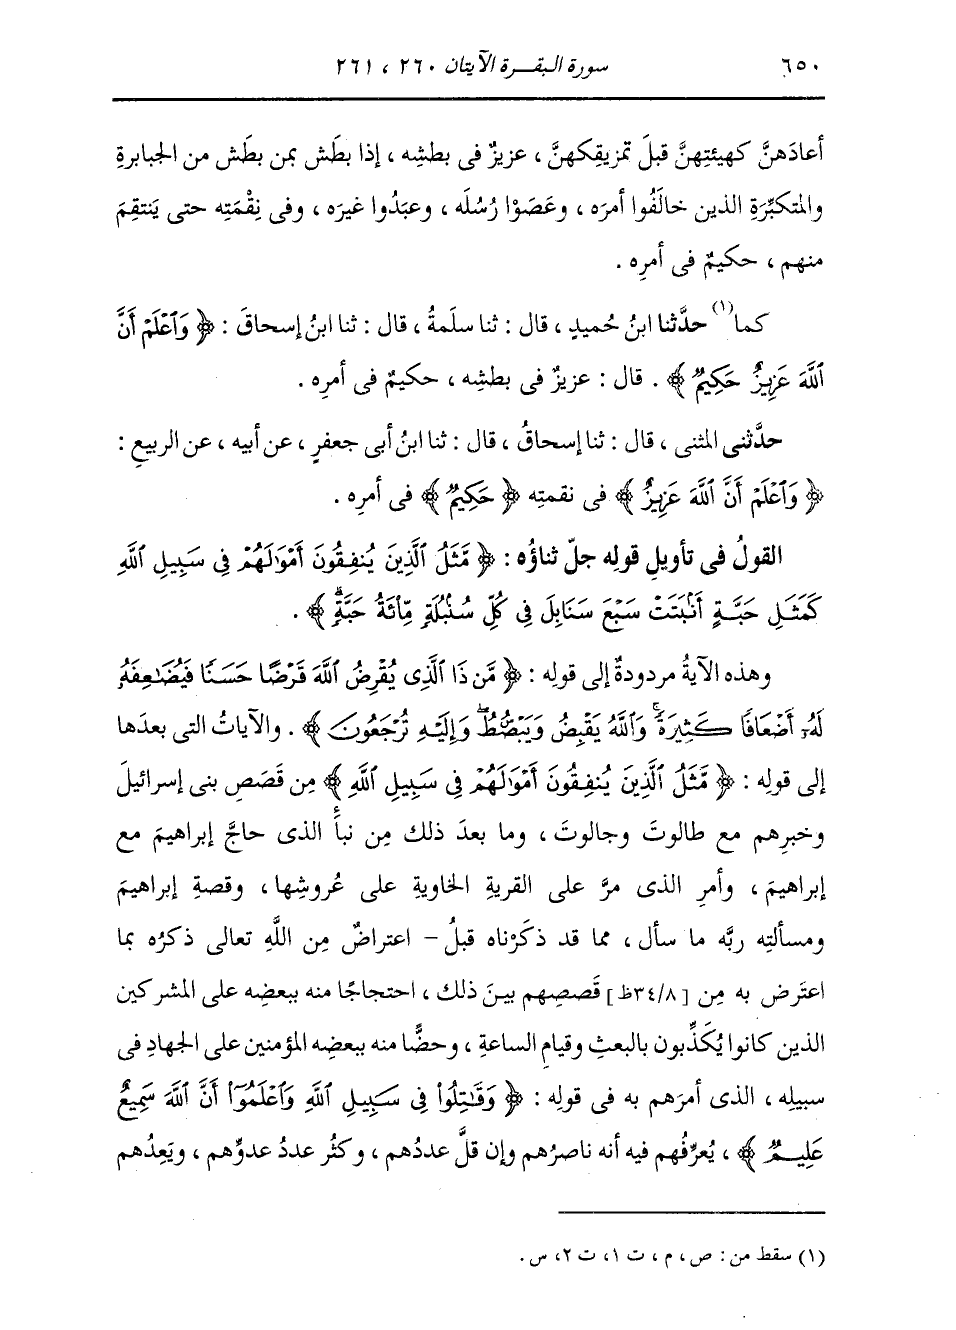 ٦٥٠ سورة البقـــرة الآيتان ٢٦٠ ، ٢٦١
أعادَهنَّ كهيئتِهنَّ قبلَ تمزيقِكهنَّ ، عزيزٌ فى بطشِه ، إذا بطَش بمن بطَش من الجبابرةِ
والمتكبِّرَةِ الذين خالَفُوا أمرَه ، وعَصَوْا رُسُلَه ، وعبَدُوا غيرَه ، وفى نِقْمَتِه حتى يَنتقِمَ
منهم ، حكيمٌ فى أمرِه .
كما(١) حدَّثنا ابنُ حُميدٍ ، قال : ثنا سلَمةُ ، قال : ثنا ابنُ إسحاقَ : ﴿ وَٱعْلَمْ أَنَّ
ٱللَّهَ عَزِيزٌ حَكِيمٌ ﴾ . قال : عزيزٌ فى بطشِه ، حكيمٌ فى أمرِه .
حدَّثنى المثنى ، قال : ثنا إسحاقُ ، قال : ثنا ابنُ أبى جعفرٍ ، عن أبيه ، عن الربيعِ :
﴿ وَٱعْلَمْ أَنَّ ٱللَّهَ عَزِيزٌ ﴾ فى نقمتِه ﴿ حَكِيمٌ ﴾ فى أمرِه .
القولُ فى تأويلِ قولِه جلّ ثناؤُه : ﴿ مَّثَلُ ٱلَّذِينَ يُنفِقُونَ أَمْوَٰلَهُمْ فِى سَبِيلِ ٱللَّهِ
كَمَثَلِ حَبَّةٍ أَنۢبَتَتْ سَبْعَ سَنَابِلَ فِى كُلِّ سُنۢبُلَةٍ مِّا۟ئَةُ حَبَّةٍۗ ﴾ .
وهذه الآيةُ مردودةٌ إلى قولِه : ﴿ مَّن ذَا ٱلَّذِى يُقْرِضُ ٱللَّهَ قَرْضًا حَسَنًا فَيُضَٰعِفَهُۥ
لَهُۥٓ أَضْعَافًا كَثِيرَةًۚ وَٱللَّهُ يَقْبِضُ وَيَبْصُۜطُ وَإِلَيْهِ تُرْجَعُونَ ﴾ . والآياتُ التى بعدَها
إلى قولِه : ﴿ مَّثَلُ ٱلَّذِينَ يُنفِقُونَ أَمْوَٰلَهُمْ فِى سَبِيلِ ٱللَّهِ ﴾ مِن قَصَصِ بنى إسرائيلَ
وخبرِهم مع طالوتَ وجالوتَ ، وما بعدَ ذلك مِن نبأَ الذى حاجَّ إبراهيمَ مع
إبراهيمَ ، وأمرِ الذى مرَّ على القريةِ الخاويةِ على عُروشِها ، وقصةِ إبراهيمَ
ومسألتِه ربَّه ما سأل ، مما قد ذكَرْناه قبلُ – اعتراضٌ مِن اللَّهِ تعالى ذكرُه بما
اعترَض به مِن [٣٤/٨ظ] قَصَصِهم بينَ ذلك ، احتجاجًا منه ببعضِه على المشركين
الذين كانوا يُكَذِّبون بالبعثِ وقيامِ الساعةِ ، وحضًّا منه ببعضِه المؤمنين على الجهادِ فى
سبيلِه ، الذى أمرَهم به فى قولِه : ﴿ وَقَٰتِلُوا۟ فِى سَبِيلِ ٱللَّهِ وَٱعْلَمُوٓا۟ أَنَّ ٱللَّهَ سَمِيعٌ
عَلِيمٌ ﴾ ، يُعرِّفُهم فيه أنه ناصرُهم وإن قلَّ عددُهم ، وكثُر عددُ عدوِّهم ، ويَعِدُهم
(١) سقط من : ص ، م ، ت ١ ، ت ٢ ، س .